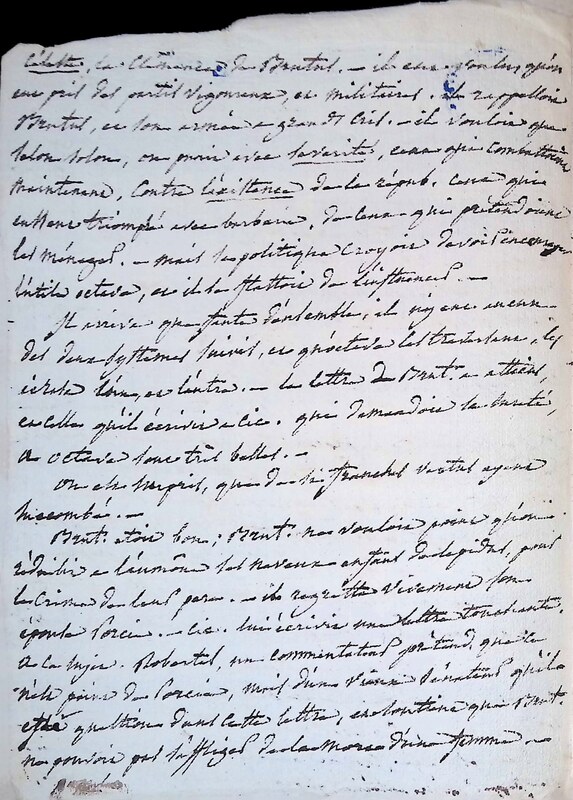 la clémence de Brutus. – il eut voulu qu'on
eut pris des partis vigoureux, et militaires. il rappelloit
Brutus, et son armée a grands cris. – il vouloit que
selon solon, on punit avec severité, ceux qui combattoient
maintenant, contre l'existence de la répub. ceux qui
eussent triomphé avec barbarie, de ceux qui prétendoient
les ménager. – mais la politique croyoit devoir encourager
l'utile octave, et il se flattoit de l'influencer. –
Il arriva que faute d'ensemble, il n'y eut aucun
des deux systèmes suivis, et qu'octave les traversant, les
écrasa l'un et l'autre. – la lettre de Brut. a atticus,
et celle qu'il écrivit a cic. qui demandoit la sureté,
a octave sont très belles. –
On est surpris, que de si franches vertus ayent
succombé. –
Brut. etoit bon; Brut. ne vouloit point qu'on
réduisit a l'aumône ses neveux enfans de lepidus, pour
le crime de leur pere. – il regretta vivement son
épouse Porcie. – cic. lui écrivit une lettre touchante,
a ce sujet. Robertel, un commentateur prétend, que ce
n'est point de Porcie, mais d'un vieux sénateur qu'il
est question dans cette lettre, et soutient que Brut.
ne pouvoit pas s'affliger de la mort d'une femme. –